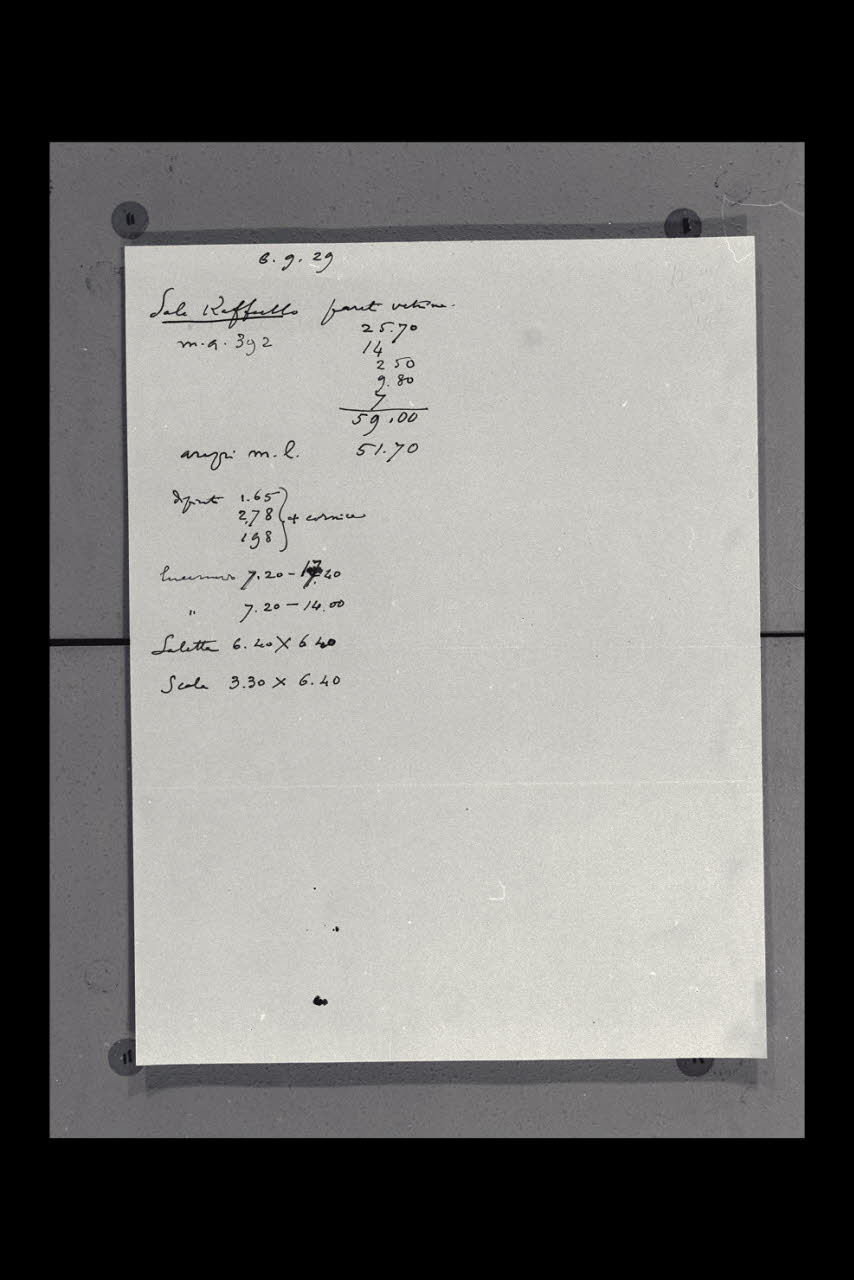 6.9.29
Sala Raffaello paret vetrine
m.q. 392
25.70
14
2 50
9.80
7
59.00
arazzi m.l. 51.70
dipinti 1.65
2,78 + cornice
198
Lucernario 7.20 - 17.40
" 7.20 - 14.00
Saletta 6.40 X 6 40
Scala 3.30 X 6.40